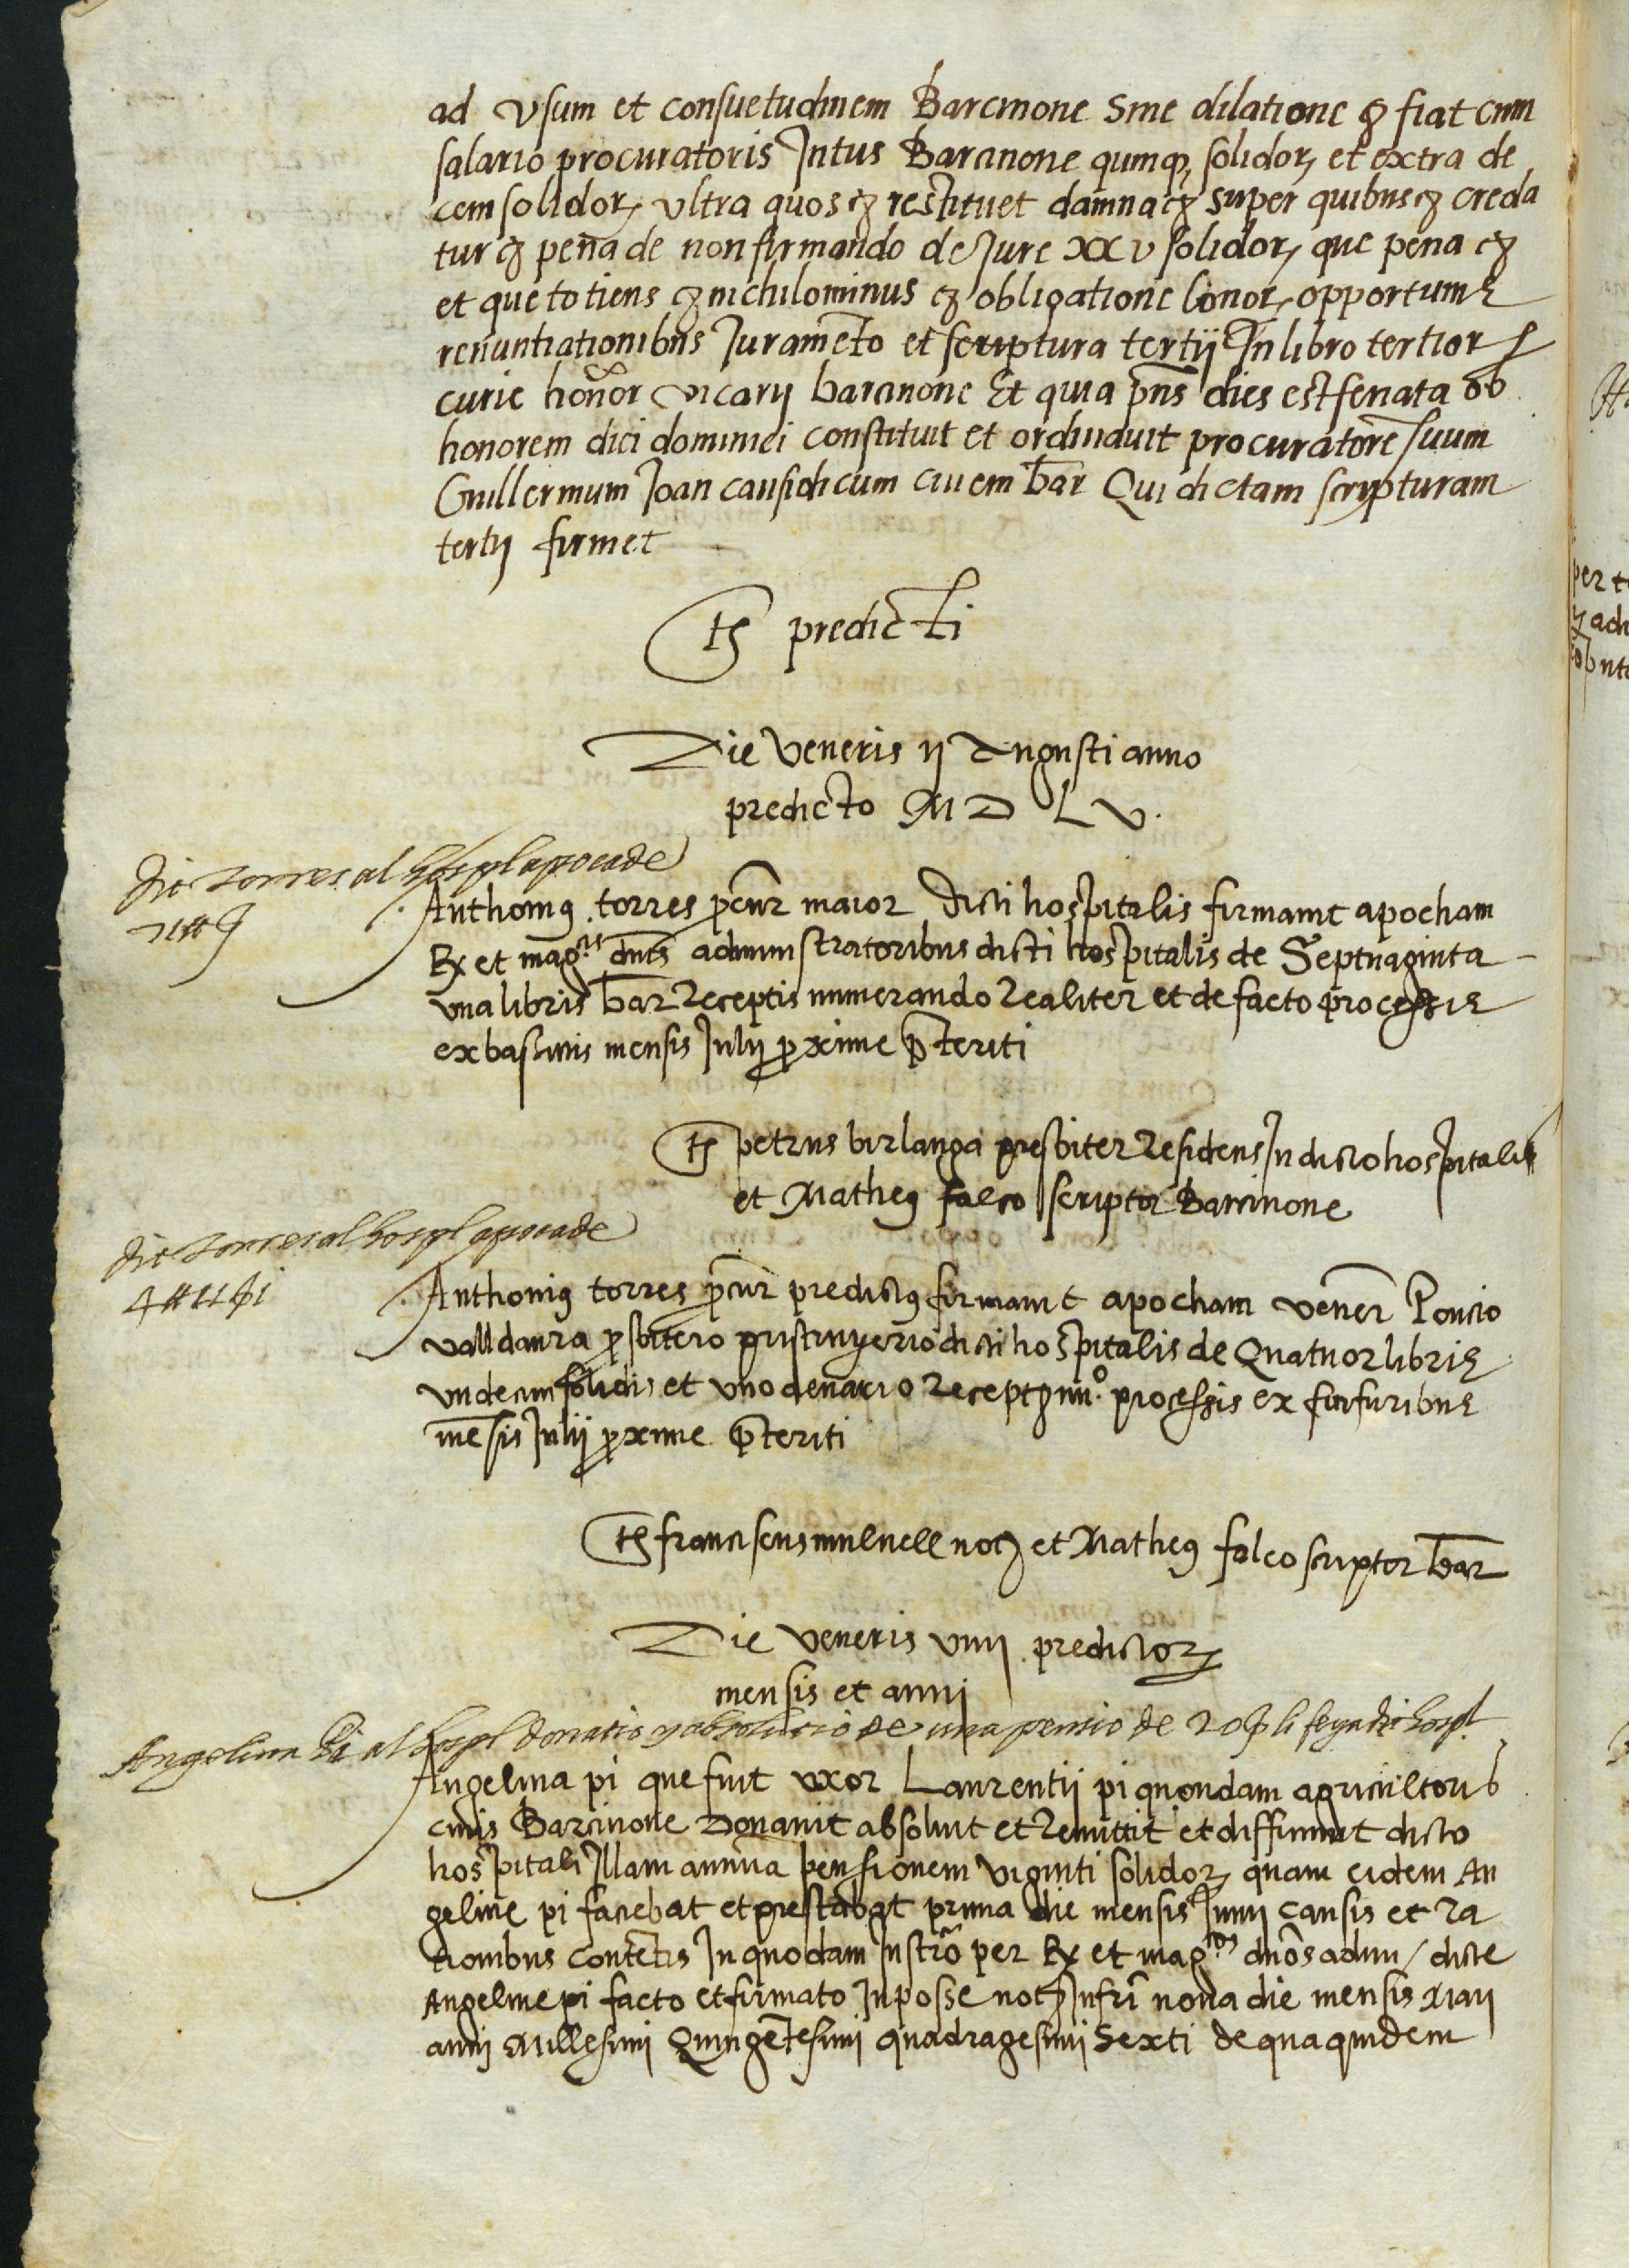 ad vsum et consuetudinem Barcinone Sine dilatione ꝫ fiat cum
salario procuratoris Intus Barcinone quinqꝫ solidoꝝ et extra de
cem solidoꝝ vltra quos ꝫ restituet damna ꝫ super quibus ꝫ creda
tur ꝫ pena de non firmando de Jure xxv solidoꝝ que pena ꝫ
et que totiens ꝫ nichilominus ꝫ obligatione bonoꝝ opportunis
renuntiationibus Jurameto et scriptura tertij In libro tertior
curie honor vicarij barcinone Et quia pns dies est feriata ob
honorem dici dominici constituit et ordinauit procuratore suum
Guillermum Joan causidicum ciuem bar Qui dictam scripturam
tertij firmet
ts predicti
Die veneris ij Augusti anno
predicto M D L v.
dit torres al hospl apoca de
71 ₶
Anthoniꝰ torres ꝓcur maior dicti hospitalis firmauit apocham
Rx et mag.cis dnis administratoribus dicti hospitalis de Septuaginta
vna libris bar receptis numerando realiter et de facto processis
ex bassinis mensis Julij ꝓxime p̄teriti
ts petrus birlanga presbiter residens In dicto hospitali
et Matheꝰ falco scriptor Barcinone
dit torres al hospl apoca de
4 ₶ 11 ß i
Anthoniꝰ torres ꝓcur predictꝰ firmauit apocham vener Poncio
valldaura ꝓsbitero pristinyerio dicti hospitalis de Quatuor libris
vndecim solidis et vno denario recept nu.o processis ex furfuribus
mēsis Julij ꝓxime p̄teriti
ts franciscus mulnell notꝫ et Matheꝰ falco scriptor bar
Die veneris viiij predictoꝝ
mensis et anni
Angelina Pi al hospl donatio y absolutio de una pensio de 20 ß li feya dit hospl
Angelina pi que fuit vxor Laurentij pi quondam agricultoris
ciuis Barcinone Donauit absoluit et remittit et diffiniuit dicto
hospitali Illam annua pensionem viginti solidoꝝ quam eidem An
geline pi faciebat et prestabat prima die mensis Junij causis et ra
tionibus contentis In quodam Instrō per Rx et mag.cos dnos adm / dicte
Angeline pi facto et firmato In posse notꝫ Infri nona die mensis Maij
anni Millesimi Quingētesimi quadragesimi Sexti de qua quidem